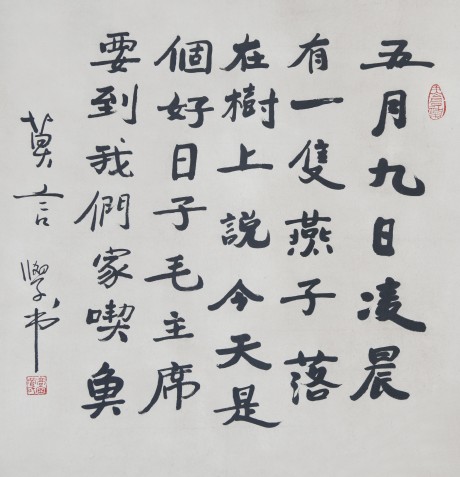 五月九日凌晨
有一隻燕子落
在樹上説今天是
個好日子毛主席
要到我們家喫魚
莫言